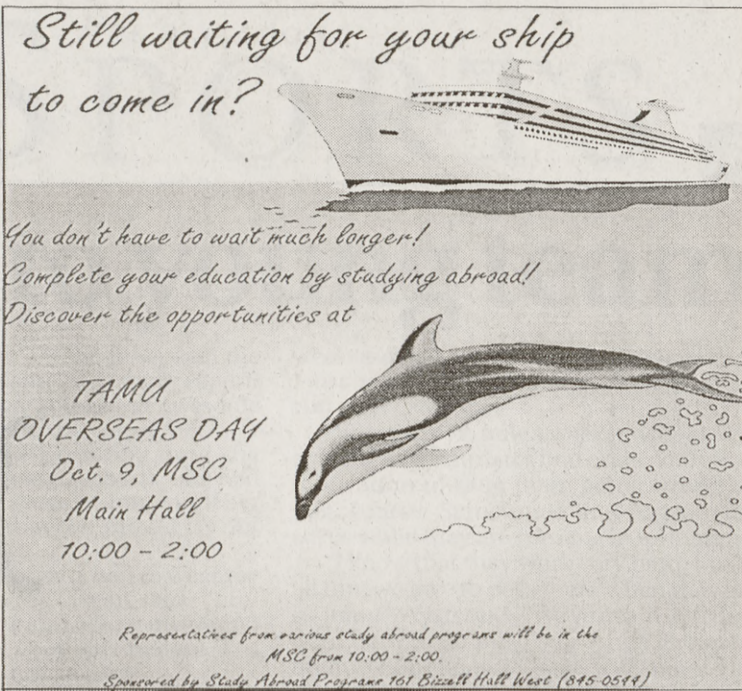 Still waiting for your ship
to come in?
You don't have to wait much longer!
Complete your education by studying abroad!
Discover the opportunities at
TAMU
OVERSEAS DAY
Oct. 9, MSC
Main Hall
10:00 - 2:00
Representatives from various study abroad programs will be in the
MSC from 10:00 - 2:00.
Sponsored by Study Abroad Programs 161 Bizzell Hall West (845-0544)